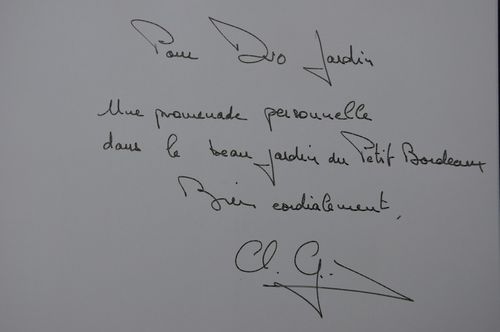 Pour Duo Jardin
Une promenade personnelle
dans le beau jardin du Petit Bordeaux
Bien cordialement,
Cl. G.